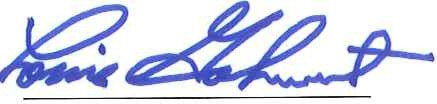 Louie Gohmert